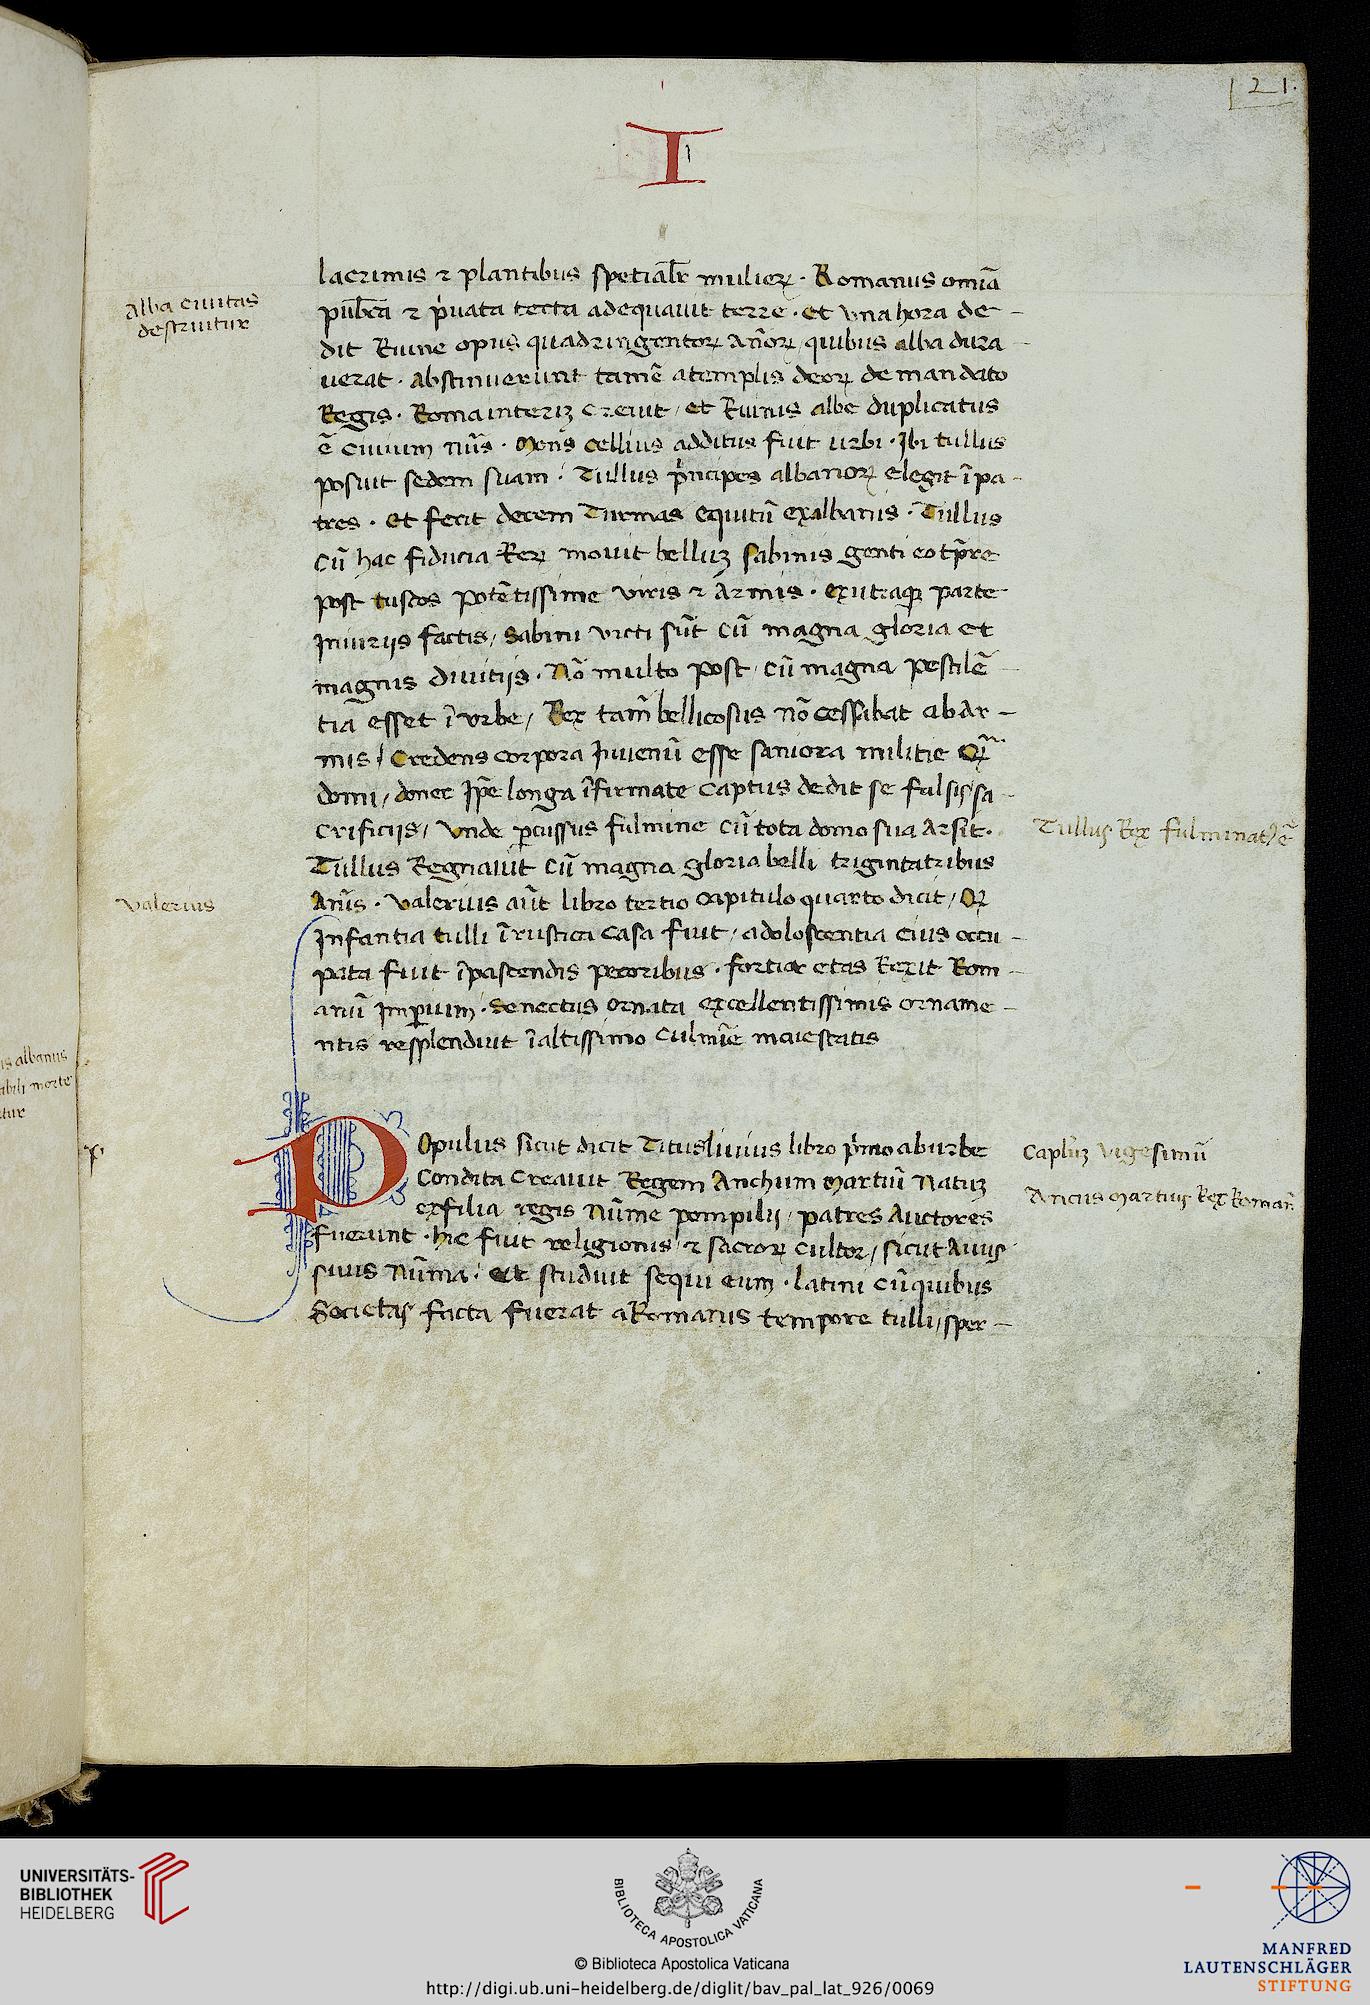 121.
I
lacrimis ⁊ plantibus spetialr̄ mulieꝝ. Romanus om̄ia
pub̄ca ⁊ pͥuata tecta adequauit terre. et vna hora de-
dit Ruine opus quadringentoꝝ an̄oꝝ, quibus alba dura-
uerat. abstinuerunt tamē a templis deoꝝ de mandato
Regis. Roma interiꝫ creuit, et Ruinis albe duplicatus
ē ciuium nu̅s. Mons cellius additus fuit urbi. Ibi tullus
posuit sedem suam. Tullus pͥncipes albanoꝝ elegit ī pa-
tres. et fecit decem Turmas equitū ex albanis. Tullus
cū hac fiducia Reꝝ mouit belluꝫ sabinis genti eo tp̄re
post tuscos potētissime viris ⁊ armis. ex utraqꝫ parte
Iniuriis factis, sabini victi sūt cū magna gloria et
magnis diuitijs. Nō multo post cū magna pestilē-
tia esset ī vrbe, Rex tam̄ bellicosus nō cessabat ab ar-
mis, Credens corpora Iuuenū esse saniora militie
domi, donec Ip̄e longa īfirmate captus dedit se falsis sa-
crificijs, vnde ꝑcussus fulmine cū tota domo sua arsit.
Tullus Regnauit cū magna gloria belli triginta tribus
an̄is. Valerius aūt libro tertio capitulo quarto dicit, qꝫ
Infantia tulli ī rustica casa fuit, adoloscentia eius occu-
pata fuit ī pascendis pecoribus. fortior etas Rexit Rom-
anū Imꝑium. Senectus ornata excellentissimis orname-
ntis resplenduit ī altissimo culmīe maiestatis
Alba ciuitas
destruitur
Tullus Rex fulminatꝰ ē
Valerius
is albanus
abili morte
tur
P
POpulus sicut dicit Titus liuius libro pͥmo ab urbe
Condita creauit Regem Anchum Martiū Natuꝫ
ex filia regis Nūme pompilij, patres Auctores
fuerunt. hic fuit religionis ⁊ sacroꝝ cultor, sicut Auus
suus Nūma. et studuit sequi eum. latini cū quibus
Societas facta fuerat a Romanis tempore tulli, sper-
Capl̄uꝫ vigesimū
Ancus Martius Rex Roman̄
UNIVERSITÄTS-
BIBLIOTHEK
HEIDELBERG
BIBLIOTECA APOSTOLICA VATICANA
© Biblioteca Apostolica Vaticana
http://digi.ub.uni-heidelberg.de/diglit/bav_pal_lat_926/0069
MANFRED
LAUTENSCHLÄGER
STIFTUNG